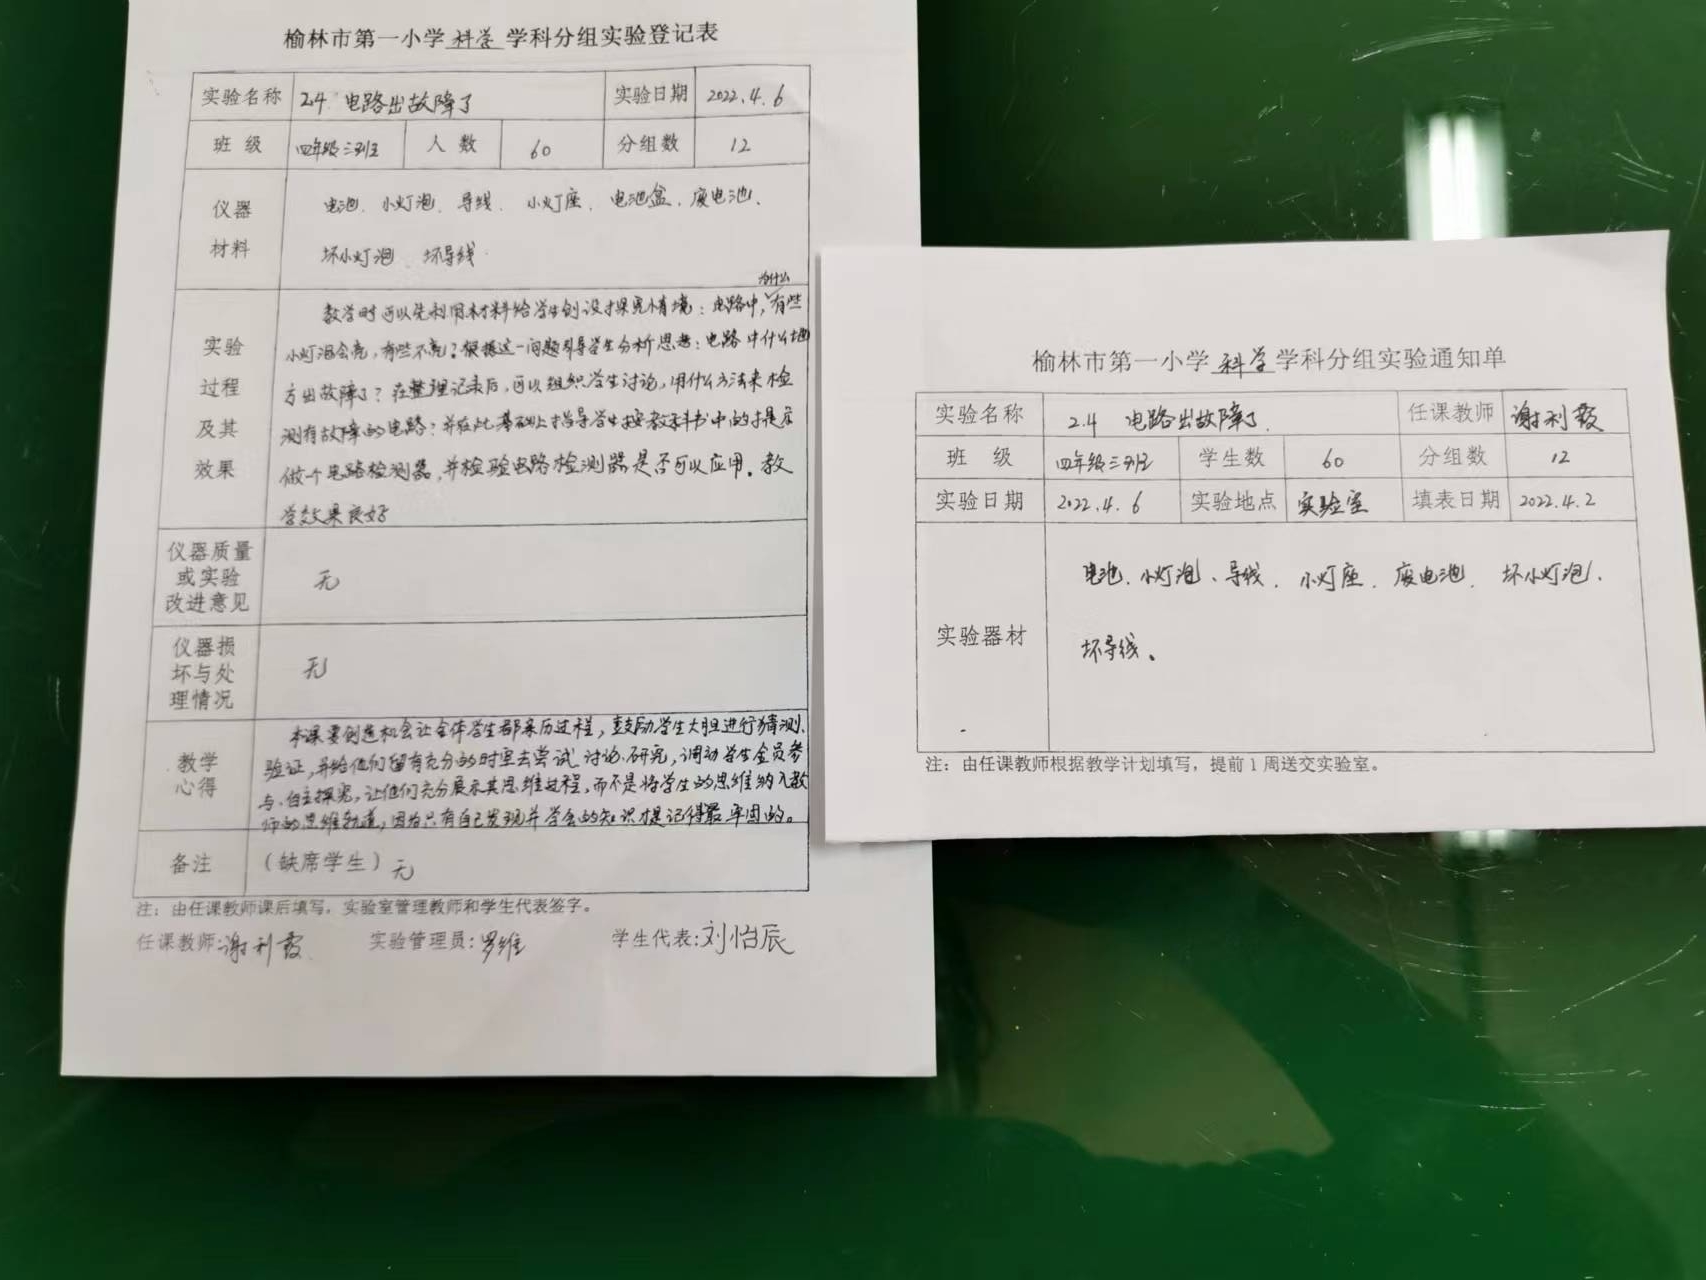 榆林市第一小学 科学 学科分组实验登记表
实验名称 2.4 电路出故障了 实验日期 2022.4.6
班级 四年级三班 人数 60 分组数 12
仪器 电池、小灯泡、导线、小灯座、电池盒、废电池、
材料 坏小灯泡、坏导线
为什么
教学时可以先利用材料给学生创设探究情境：电路中，有些
实验 小灯泡会亮，有些不亮？根据这一问题引导学生分析思考：电路中什么地
过程 方出故障了？在整理记录后，可以组织学生讨论，用什么方法来检
及其 测有故障的电路？并在此基础上指导学生按教科书中的提示
效果 做个电路检测器，并检验电路检测器是否可以应用。教
学效果良好
仪器质量
或实验 无
改进意见
仪器损
坏与处 无
理情况
本课要创造机会让全体学生都亲历过程，鼓励学生大胆进行猜测、
教学 验证，并给他们留有充分的时空去尝试、讨论、研究，调动学生全员参
心得 与、自主探究，让他们充分展示其思维过程，而不是将学生的思维纳入教
师的思维轨道，因为只有自己发现并学会的知识才是记得最牢固的。
备注 （缺席学生）无
注：由任课教师课后填写，实验室管理教师和学生代表签字。
任课教师：谢利霞 实验管理员：罗维 学生代表：刘怡辰
榆林市第一小学 科学 学科分组实验通知单
实验名称 2.4 电路出故障了 任课教师 谢利霞
班级 四年级三班 学生数 60 分组数 12
实验日期 2022.4.6 实验地点 实验室 填表日期 2022.4.2
电池、小灯泡、导线、小灯座、废电池、坏小灯泡、
实验器材 坏导线。
注：由任课教师根据教学计划填写，提前1周送交实验室。